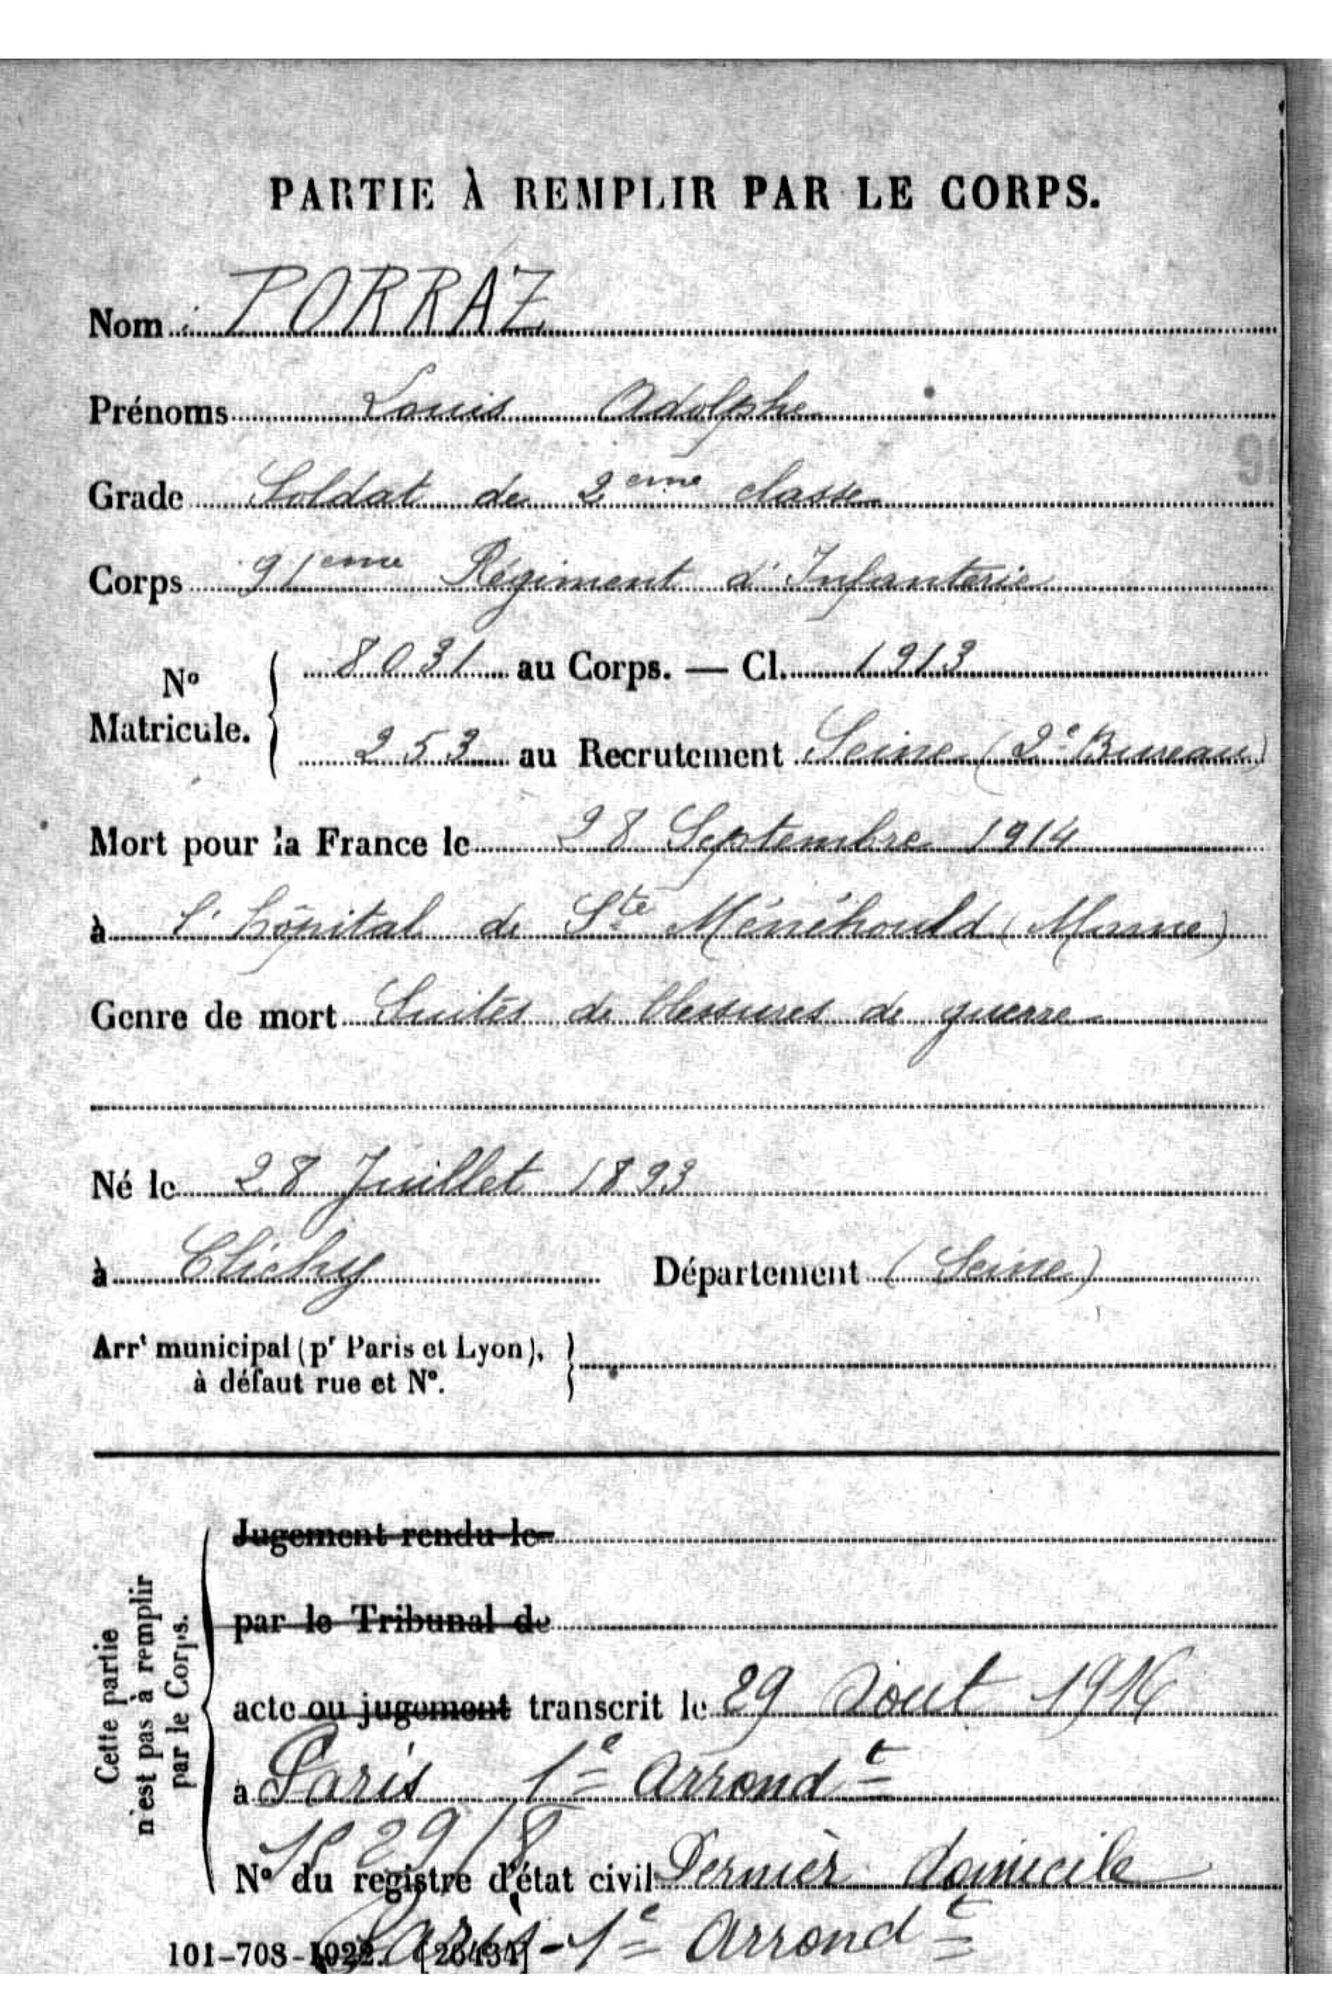 PARTIE À REMPLIR PAR LE CORPS.
Nom : PORRAZ
Prénoms Louis Adolphe
Grade Soldat de 2ème classe
91
Corps 91eme Régiment d'Infanterie
N° Matricule. 8031 au Corps. — Cl. 1913
253 au Recrutement Seine (2e Bureau)
Mort pour la France le 28 Septembre 1914
à l'hôpital de Ste Ménéhould (Marne)
Genre de mort Suites de blessures de guerre
Né le 28 Juillet 1893
à Clichy Département (Seine)
Arrt municipal (pr Paris et Lyon),
à défaut rue et N°.
Cette partie
n'est pas à remplir
par le Corps.
Jugement rendu le
par le Tribunal de
acte ou jugement transcrit le 29 Aout 1916
à Paris 1e Arrondt
29/8
N° du registre d'état civil Dernier domicile
Paris - 1e Arrondt
101-708-1022. [26434]